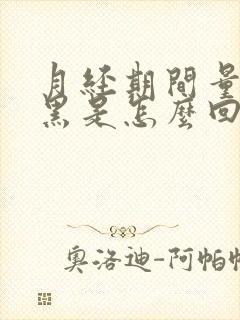 月經期間量
黑是怎麼回
奧洛迪-阿帕帕